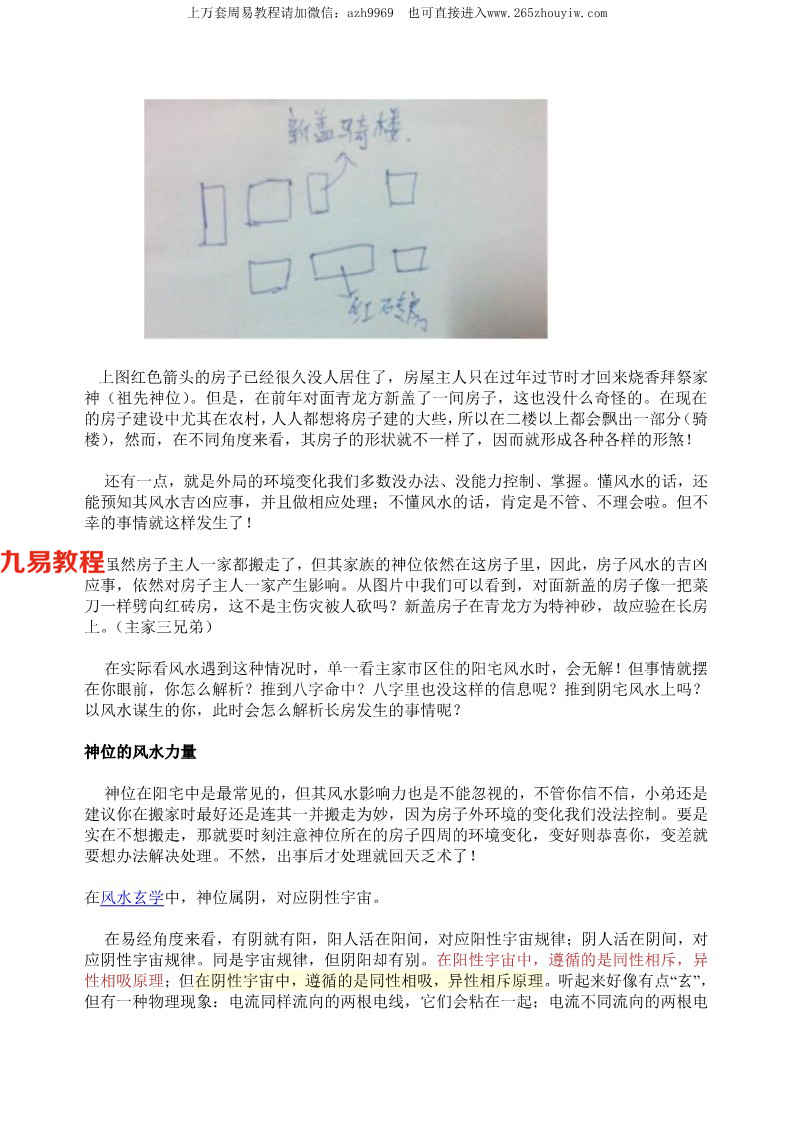 上万套周易教程请加微信：azh9969 也可直接进入www.265zhouyiw.com
新盖骑楼.
红砖房
上图红色箭头的房子已经很久没人居住了，房屋主人只在过年过节时才回来烧香拜祭家
神（祖先神位）。但是，在前年对面青龙方新盖了一间房子，这也没什么奇怪的。在现在
的房子建设中尤其在农村，人人都想将房子建的大些，所以在二楼以上都会飘出一部分（骑
楼），然而，在不同角度来看，其房子的形状就不一样了，因而就形成各种各样的形煞！
还有一点，就是外局的环境变化我们多数没办法、没能力控制、掌握。懂风水的话，还
能预知其风水吉凶应事，并且做相应处理；不懂风水的话，肯定是不管、不理会啦。但不
幸的事情就这样发生了！
九易教程
虽然房子主人一家都搬走了，但其家族的神位依然在这房子里，因此，房子风水的吉凶
应事，依然对房子主人一家产生影响。从图片中我们可以看到，对面新盖的房子像一把菜
刀一样劈向红砖房，这不是主伤灾被人砍吗？新盖房子在青龙方为特神砂，故应验在长房
上。（主家三兄弟）
在实际看风水遇到这种情况时，单一看主家市区住的阳宅风水时，会无解！但事情就摆
在你眼前，你怎么解析？推到八字命中？八字里也没这样的信息呢？推到阴宅风水上吗？
以风水谋生的你，此时会怎么解析长房发生的事情呢？
神位的风水力量
神位在阳宅中是最常见的，但其风水影响力也是不能忽视的，不管你信不信，小弟还是
建议你在搬家时最好还是连其一并搬走为妙，因为房子外环境的变化我们没法控制。要是
实在不想搬走，那就要时刻注意神位所在的房子四周的环境变化，变好则恭喜你，变差就
要想办法解决处理。不然，出事后才处理就回天乏术了！
在风水玄学中，神位属阴，对应阴性宇宙。
在易经角度来看，有阴就有阳，阳人活在阳间，对应阳性宇宙规律；阴人活在阴间，对
应阴性宇宙规律。同是宇宙规律，但阴阳却有别。在阳性宇宙中，遵循的是同性相斥，异
性相吸原理；但在阴性宇宙中，遵循的是同性相吸，异性相斥原理。听起来好像有点“玄”，
但有一种物理现象：电流同样流向的两根电线，它们会粘在一起；电流不同流向的两根电